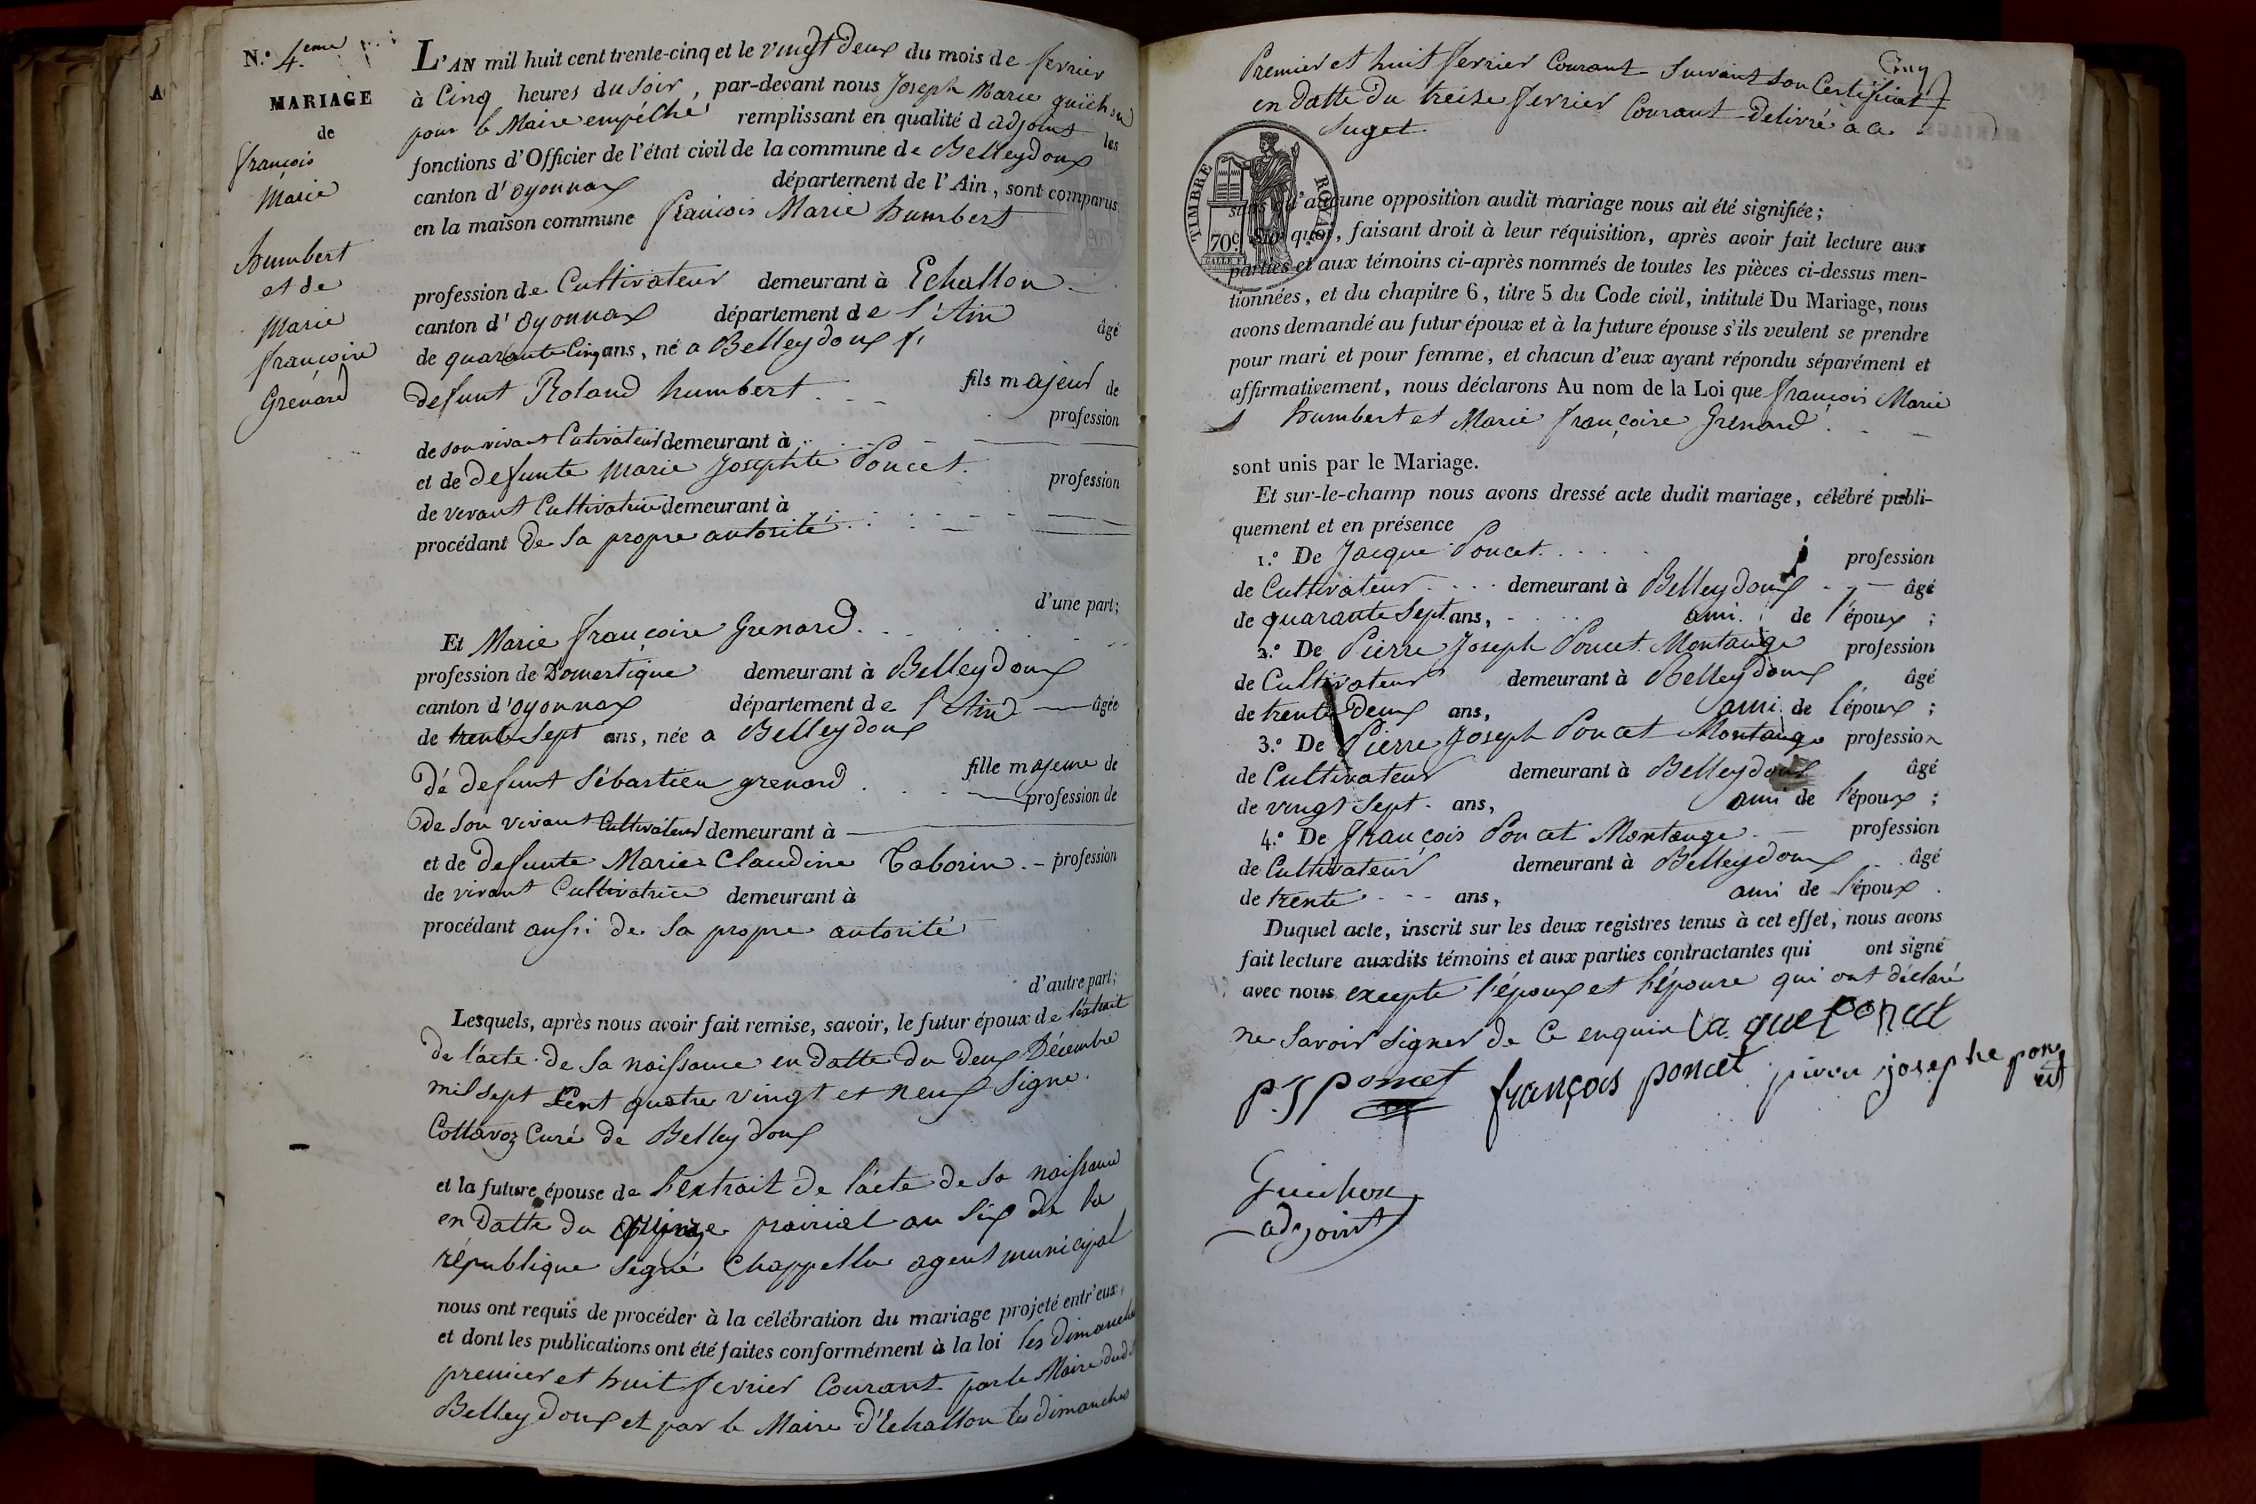 N.o 4.eme
A
MARIAGE
de
françois
Marie
humbert
et de
Marie
françoise
Grenard
L'AN mil huit cent trente-cinq et le vingt deux du mois de fevrier
à Cinq heures du soir, par-devant nous Joseph Marie guichon
pour le Maire empéché remplissant en qualité d adjoint les
fonctions d'Officier de l'état civil de la commune de Belleydoux
canton d'oyonnax département de l'Ain, sont comparus
en la maison commune françois Marie humbert
profession de Cultivateur demeurant à Echallon
canton d'oyonnax département de l'Ain âgé
de quarante Cinq ans, né a Belleydoux
fils majeur de
defunt Roland humbert
profession
de son vivant Cutivateur demeurant à
et de defunte Marie Josephte Poncet
profession
de vivant Cultivatrice demeurant à
procédant de sa propre autorité
d'une part;
Et Marie françoise Grenard
profession de Domestique demeurant à Belleydoux
canton d'oyonnax département de l'Ain âgée
de trente sept ans, née a Belleydoux
fille majeure de
dé defunt sébastien grenard
profession de
de son vivant Cultivateur demeurant à
et de defunte Marie Claudine Taborin profession
de vivant Cultivatrice demeurant à
procédant aussi de sa propre autorité
d'autre part;
Lesquels, après nous avoir fait remise, savoir, le futur époux de l'extrait
de l'acte de sa naissance en datte du deux Décembre
mil sept Cent quatre vingt et neuf signé
Collavoz Curé de Belleydoux
et la future épouse de l'extrait de l'acte de sa naissance
en datte du quinze prairial an six de la
république signé Chappellu agent municipal
nous ont requis de procéder à la célébration du mariage projeté entr'eux,
et dont les publications ont été faites conformément à la loi les dimanches
premier et huit fevrier Courant par le Maire dudt
Belleydoux et par le Maire d'Echallon les dimanches
Premier et huit fevrier Courant suivant son Certificat
en datte du treize fevrier Courant delivré a ce
suget
TIMBRE ROYAL
70c
sans qu'aucune opposition audit mariage nous ait été signifiée;
Sur quoi, faisant droit à leur réquisition, après avoir fait lecture aux
parties et aux témoins ci-après nommés de toutes les pièces ci-dessus men-
tionnées, et du chapitre 6, titre 5 du Code civil, intitulé Du Mariage, nous
avons demandé au futur époux et à la future épouse s'ils veulent se prendre
pour mari et pour femme, et chacun d'eux ayant répondu séparément et
affirmativement, nous déclarons Au nom de la Loi que françois Marie
humbert et Marie françoise Grenard
sont unis par le Mariage.
Et sur-le-champ nous avons dressé acte dudit mariage, célébré publi-
quement et en présence
1.o De Jacque Poncet profession
de Cultivateur demeurant à Belleydoux âgé
de quarante sept ans, ami de l'époux;
2.o De Pierre Joseph Poncet Montange profession
de Cultivateur demeurant à Belleydoux âgé
de trente Deux ans, ami de l'époux;
3.o De Pierre Joseph Poncet Montange profession
de Cultivateur demeurant à Belleydoux âgé
de vingt sept ans, ami de l'époux;
4.o De françois Poncet Montange profession
de Cultivateur demeurant à Belleydoux âgé
de trente ans, ami de l'époux.
Duquel acte, inscrit sur les deux registres tenus à cet effet, nous avons
fait lecture auxdits témoins et aux parties contractantes qui ont signé
avec nous excepte l'époux et l'épouse qui ont déclaré
ne savoir signer de ce enquis Jaque Poncet
P. J. poncet françois poncet pierre josephe poncet
Guichon
adjoint